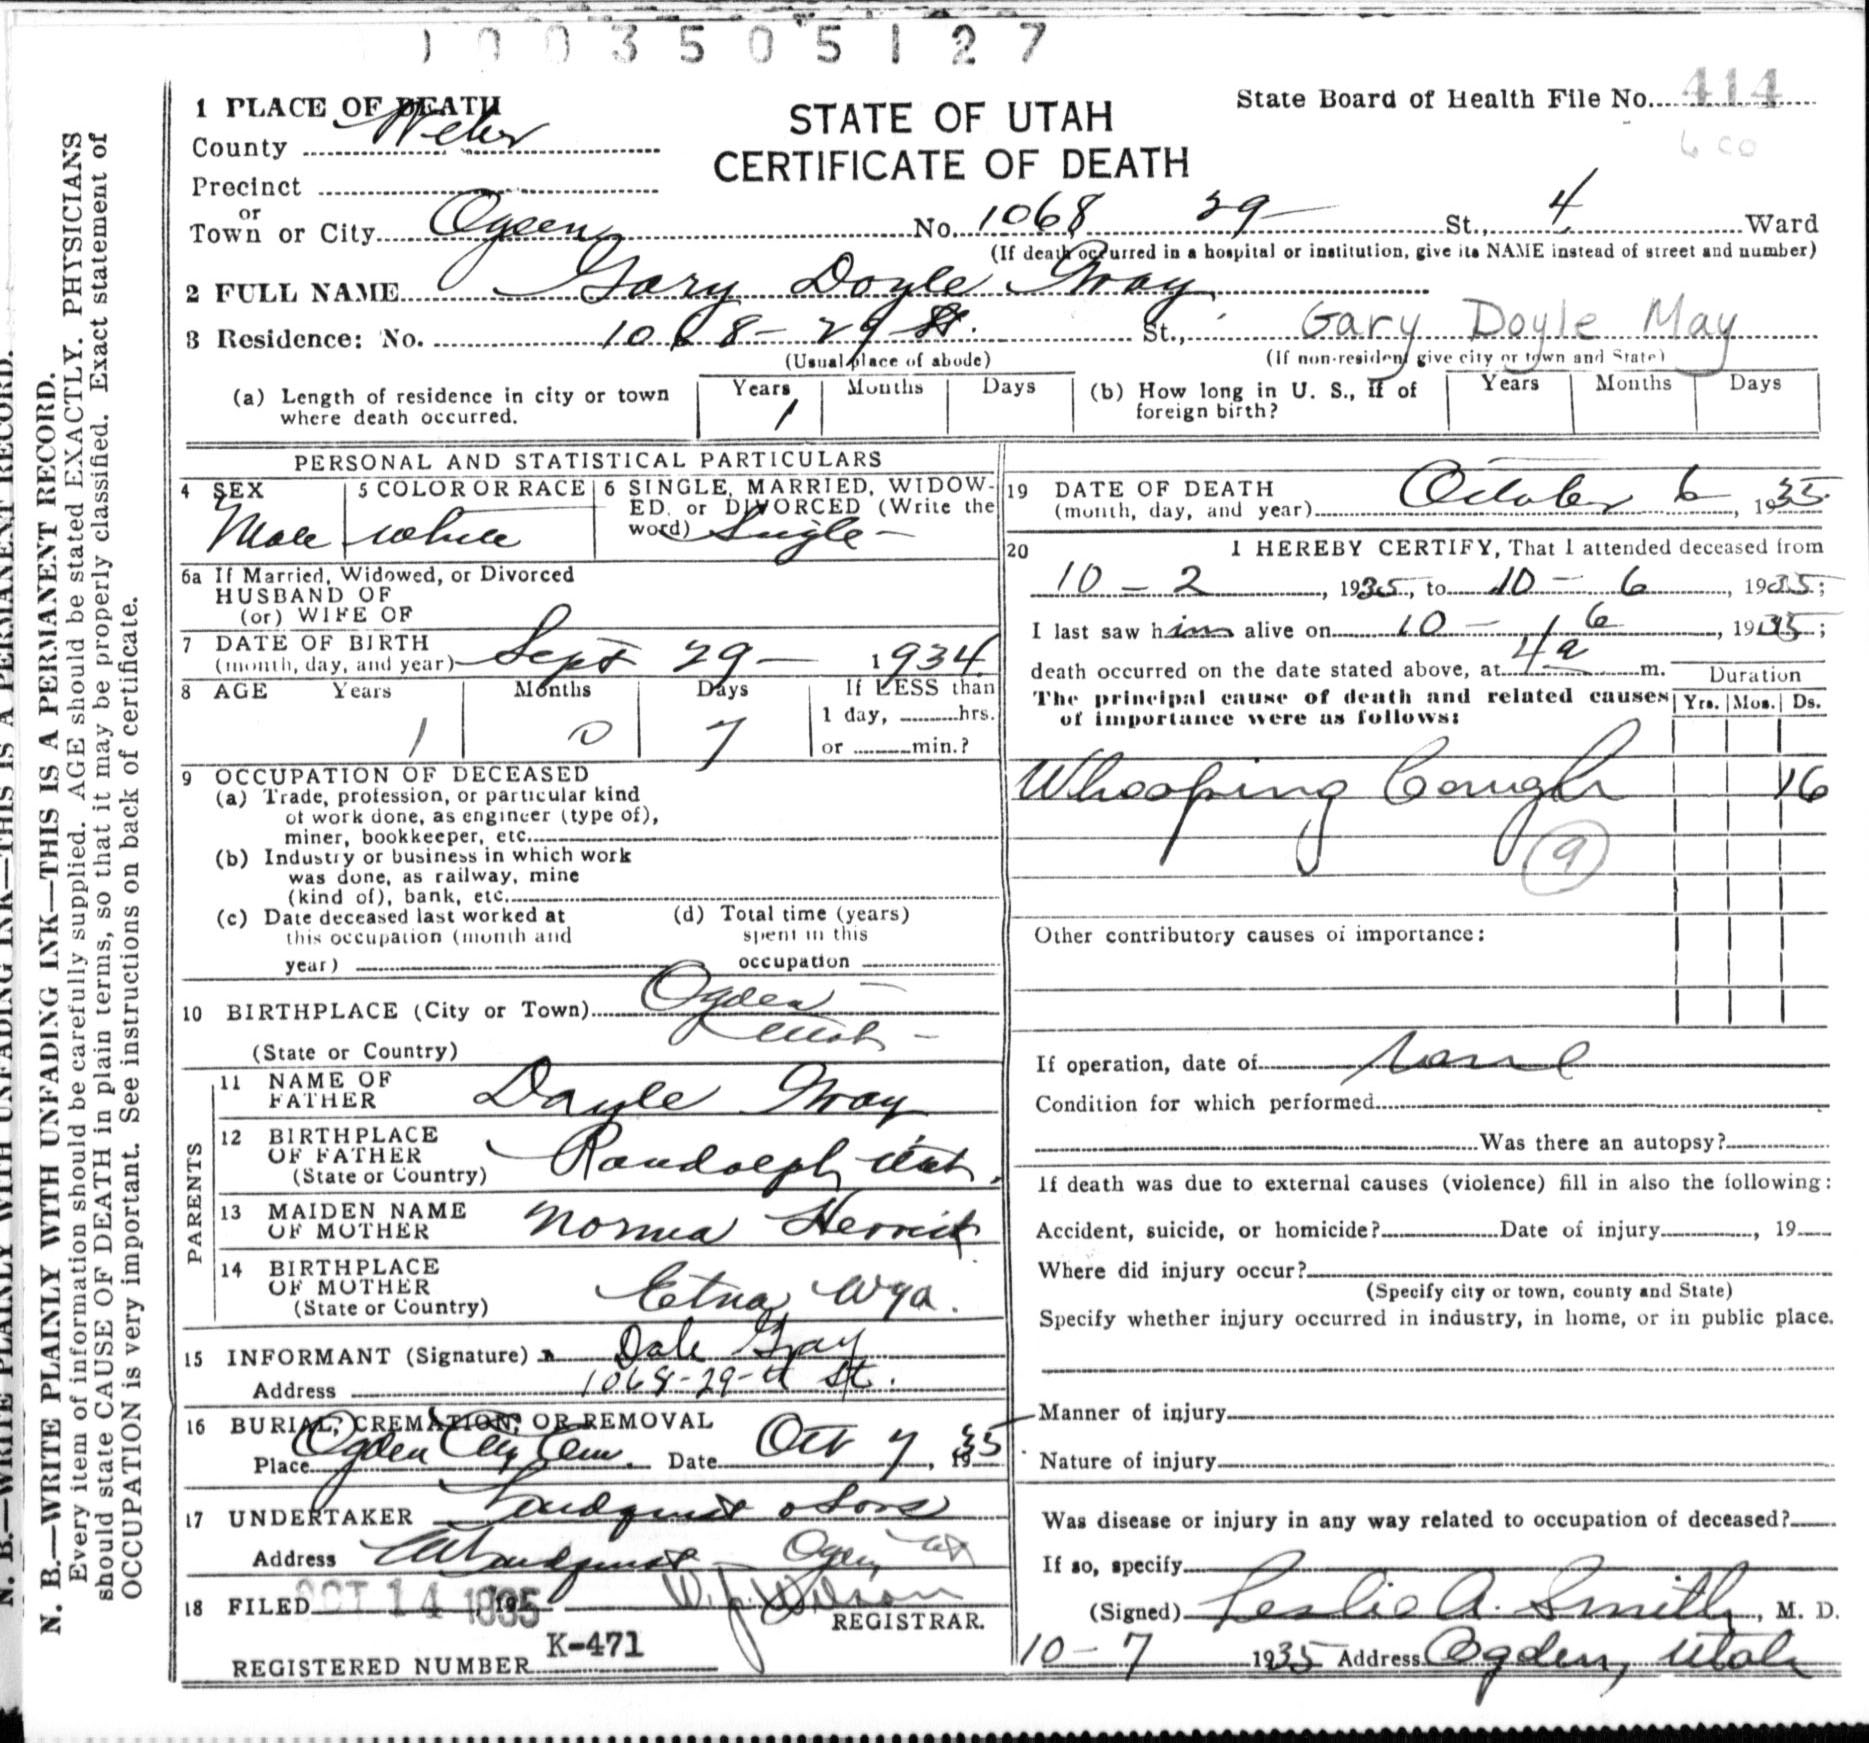 1003505127
1 PLACE OF DEATH
County Weber
STATE OF UTAH
CERTIFICATE OF DEATH
State Board of Health File No. 414
Precinct
or
Town or City Ogden No. 1068 29 St., 4 Ward
(If death occurred in a hospital or institution, give its NAME instead of street and number)
2 FULL NAME Gary Doyle Gray
3 Residence: No. 1068-29 St. St., Gary Doyle May
(Usual place of abode) (If non-resident give city or town and State)
(a) Length of residence in city or town where death occurred. Years 1 Months Days
(b) How long in U. S., if of foreign birth? Years Months Days
PERSONAL AND STATISTICAL PARTICULARS
4 SEX Male
5 COLOR OR RACE white
6 SINGLE, MARRIED, WIDOW-
ED, or DIVORCED (Write the
word) Single -
6a If Married, Widowed, or Divorced
HUSBAND OF
(or) WIFE OF
7 DATE OF BIRTH
(month, day, and year) Sept 29 - 1934
8 AGE Years 1 Months 0 Days 7 If LESS than
1 day, hrs.
or min.?
9 OCCUPATION OF DECEASED
(a) Trade, profession, or particular kind
of work done, as engineer (type of),
miner, bookkeeper, etc.
(b) Industry or business in which work
was done, as railway, mine
(kind of), bank, etc.
(c) Date deceased last worked at
this occupation (month and
year)
(d) Total time (years)
spent in this
occupation
10 BIRTHPLACE (City or Town) Ogden
(State or Country) Utah -
PARENTS
11 NAME OF
FATHER Dayle Gray
12 BIRTHPLACE
OF FATHER
(State or Country) Randolph Utah.
13 MAIDEN NAME
OF MOTHER Norma Herrick
14 BIRTHPLACE
OF MOTHER
(State or Country) Etna, Wyo.
15 INFORMANT (Signature) Dale Gray
Address 1068-29-St.
16 BURIAL, CREMATION, OR REMOVAL
Place Ogden City Cem. Date Oct 7, 1935
17 UNDERTAKER Lindquist & Sons
Address Ogden, Ut
18 FILED OCT 14 1935 W. J. Wilson
REGISTRAR.
REGISTERED NUMBER K-471
19 DATE OF DEATH
(month, day, and year) October 6, 1935
20 I HEREBY CERTIFY, That I attended deceased from
10 - 2, 1935, to 10 - 6, 1935;
I last saw him alive on 10 - 6, 1935;
death occurred on the date stated above, at 4a m.
The principal cause of death and related causes
of importance were as follows:
Duration
Yrs. Mos. Ds.
Whooping Cough 16
9
Other contributory causes of importance:
If operation, date of none
Condition for which performed
Was there an autopsy?
If death was due to external causes (violence) fill in also the following:
Accident, suicide, or homicide? Date of injury, 19
Where did injury occur?
(Specify city or town, county and State)
Specify whether injury occurred in industry, in home, or in public place.
Manner of injury
Nature of injury
Was disease or injury in any way related to occupation of deceased?
If so, specify
(Signed) Leslie A. Smith, M. D.
10-7 1935 Address Ogden, Utah
N. B.—WRITE PLAINLY WITH UNFADING INK—THIS IS A PERMANENT RECORD.
N. B.—WRITE PLAINLY WITH UNFADING INK—THIS IS A PERMANENT RECORD.
Every item of information should be carefully supplied. AGE should be stated EXACTLY. PHYSICIANS
should state CAUSE OF DEATH in plain terms, so that it may be properly classified. Exact statement of
OCCUPATION is very important. See instructions on back of certificate.